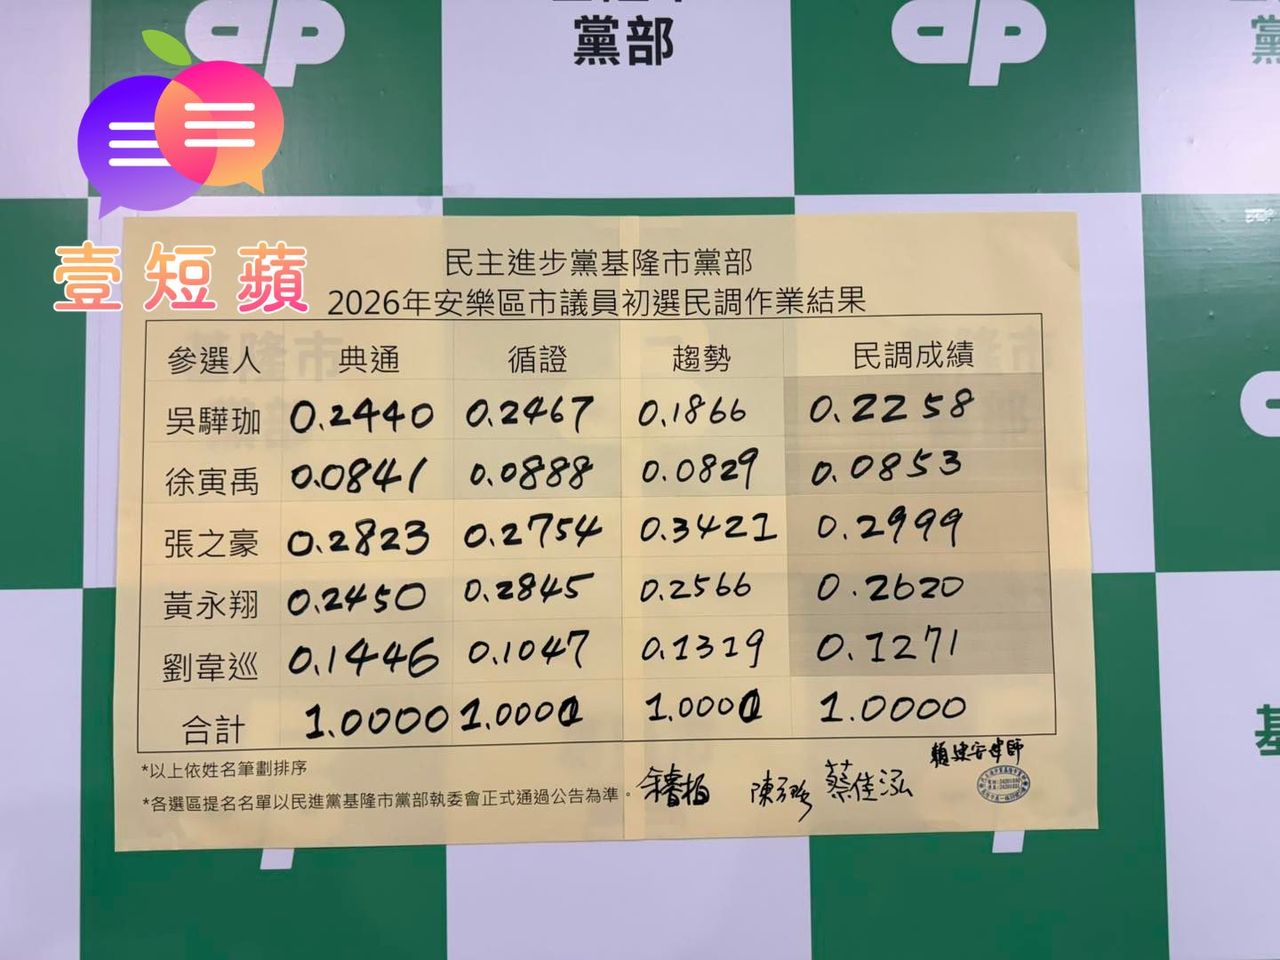 黨部
壹短蘋
民主進步黨基隆市黨部
2026年安樂區市議員初選民調作業結果
參選人 典通 循證 趨勢 民調成績
吳驊珈 0.2440 0.2467 0.1866 0.2258
徐寅禹 0.0841 0.0888 0.0829 0.0853
張之豪 0.2823 0.2754 0.3421 0.2999
黃永翔 0.2450 0.2845 0.2566 0.2620
劉韋巡 0.1446 0.1047 0.1319 0.1271
合計 1.0000 1.0001 1.0001 1.0000
*以上依姓名筆劃排序
*各選區提名名單以民進黨基隆市黨部執委會正式通過公告為準。
蔡佳泓
賴建安律師
基